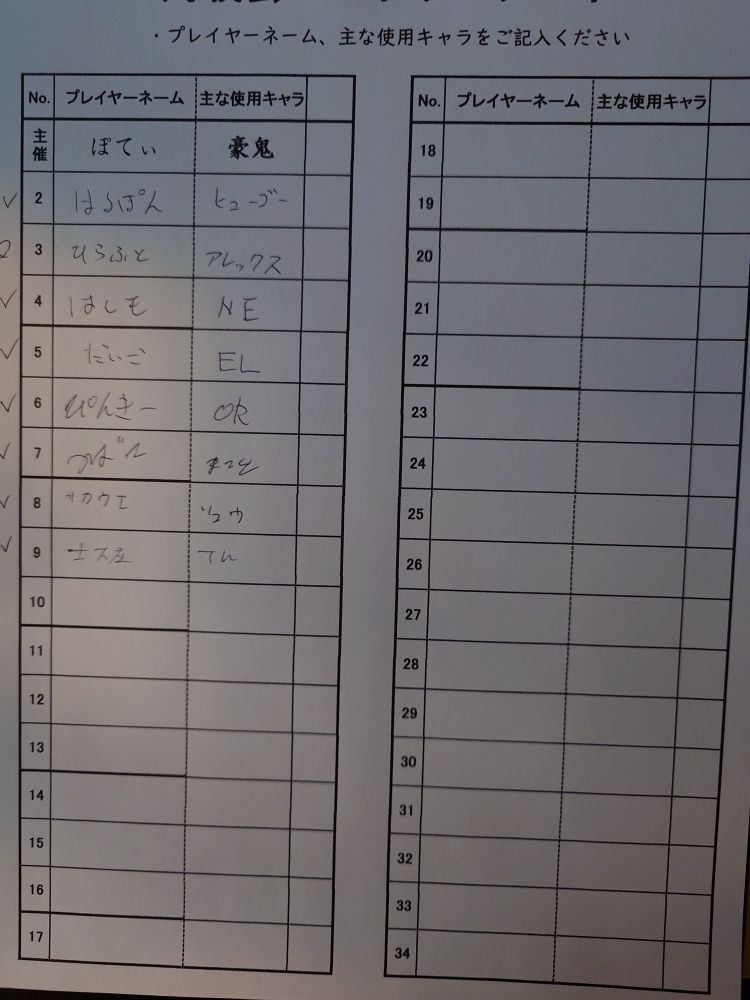 ・プレイヤーネーム、主な使用キャラをご記入ください
No. プレイヤーネーム 主な使用キャラ
主催 ぽてぃ 豪鬼
2 はらぽん ヒューゴー
3 ひらふと アレックス
4 はしも NE
5 だいご EL
6 ぴんきー OR
7 まこと
8 サカウエ
9
10
11
12
13
14
15
16
17
No. プレイヤーネーム 主な使用キャラ
18
19
20
21
22
23
24
25
26
27
28
29
30
31
32
33
34